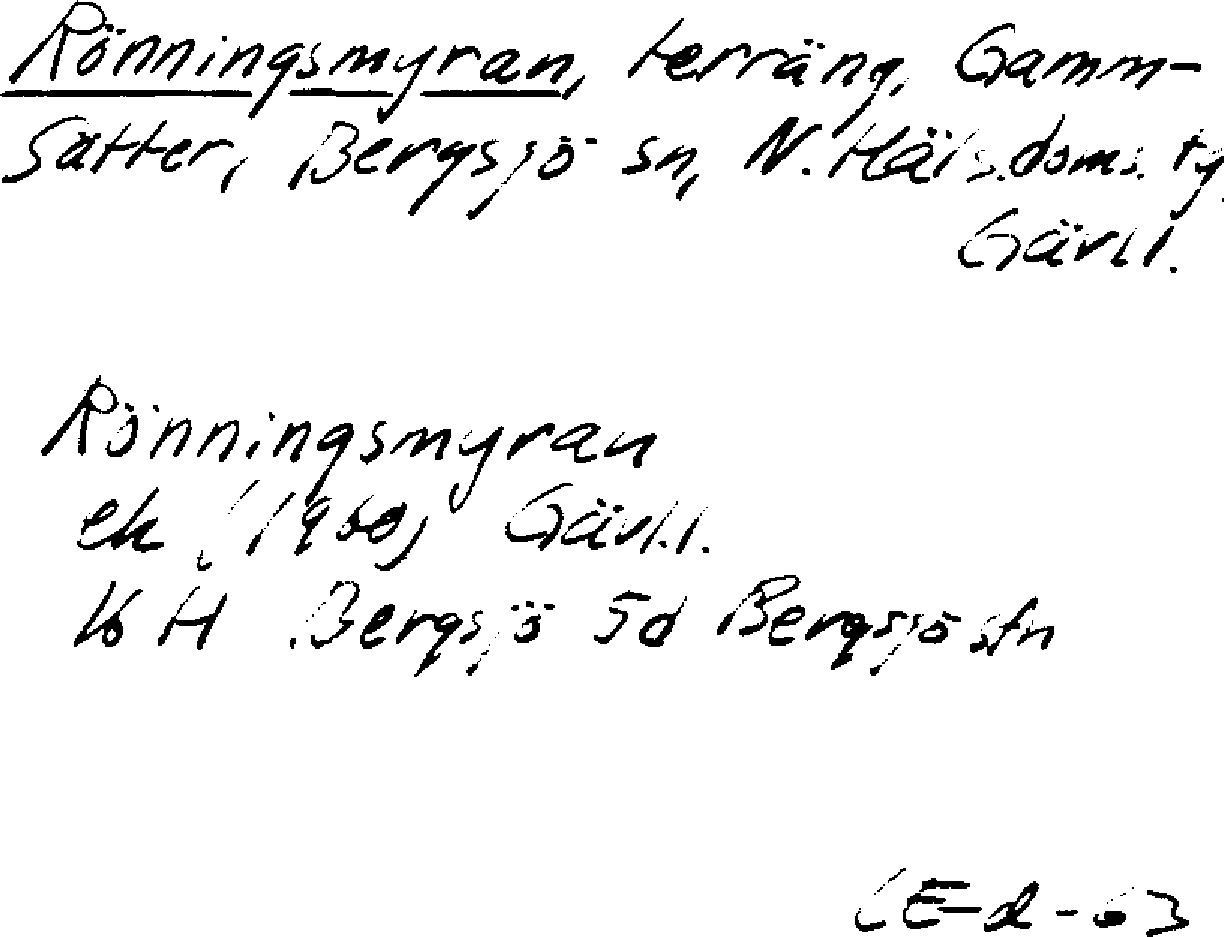 Rönningsmyran, terräng, Gamm-
sätter, Bergsjö sn, N. Häls. doms. tg
Gävl.l.
Rönningsmyran
ek (1960) Gävl.l.
16 H Bergsjö 5d Bergsjö stn
CE-d-63